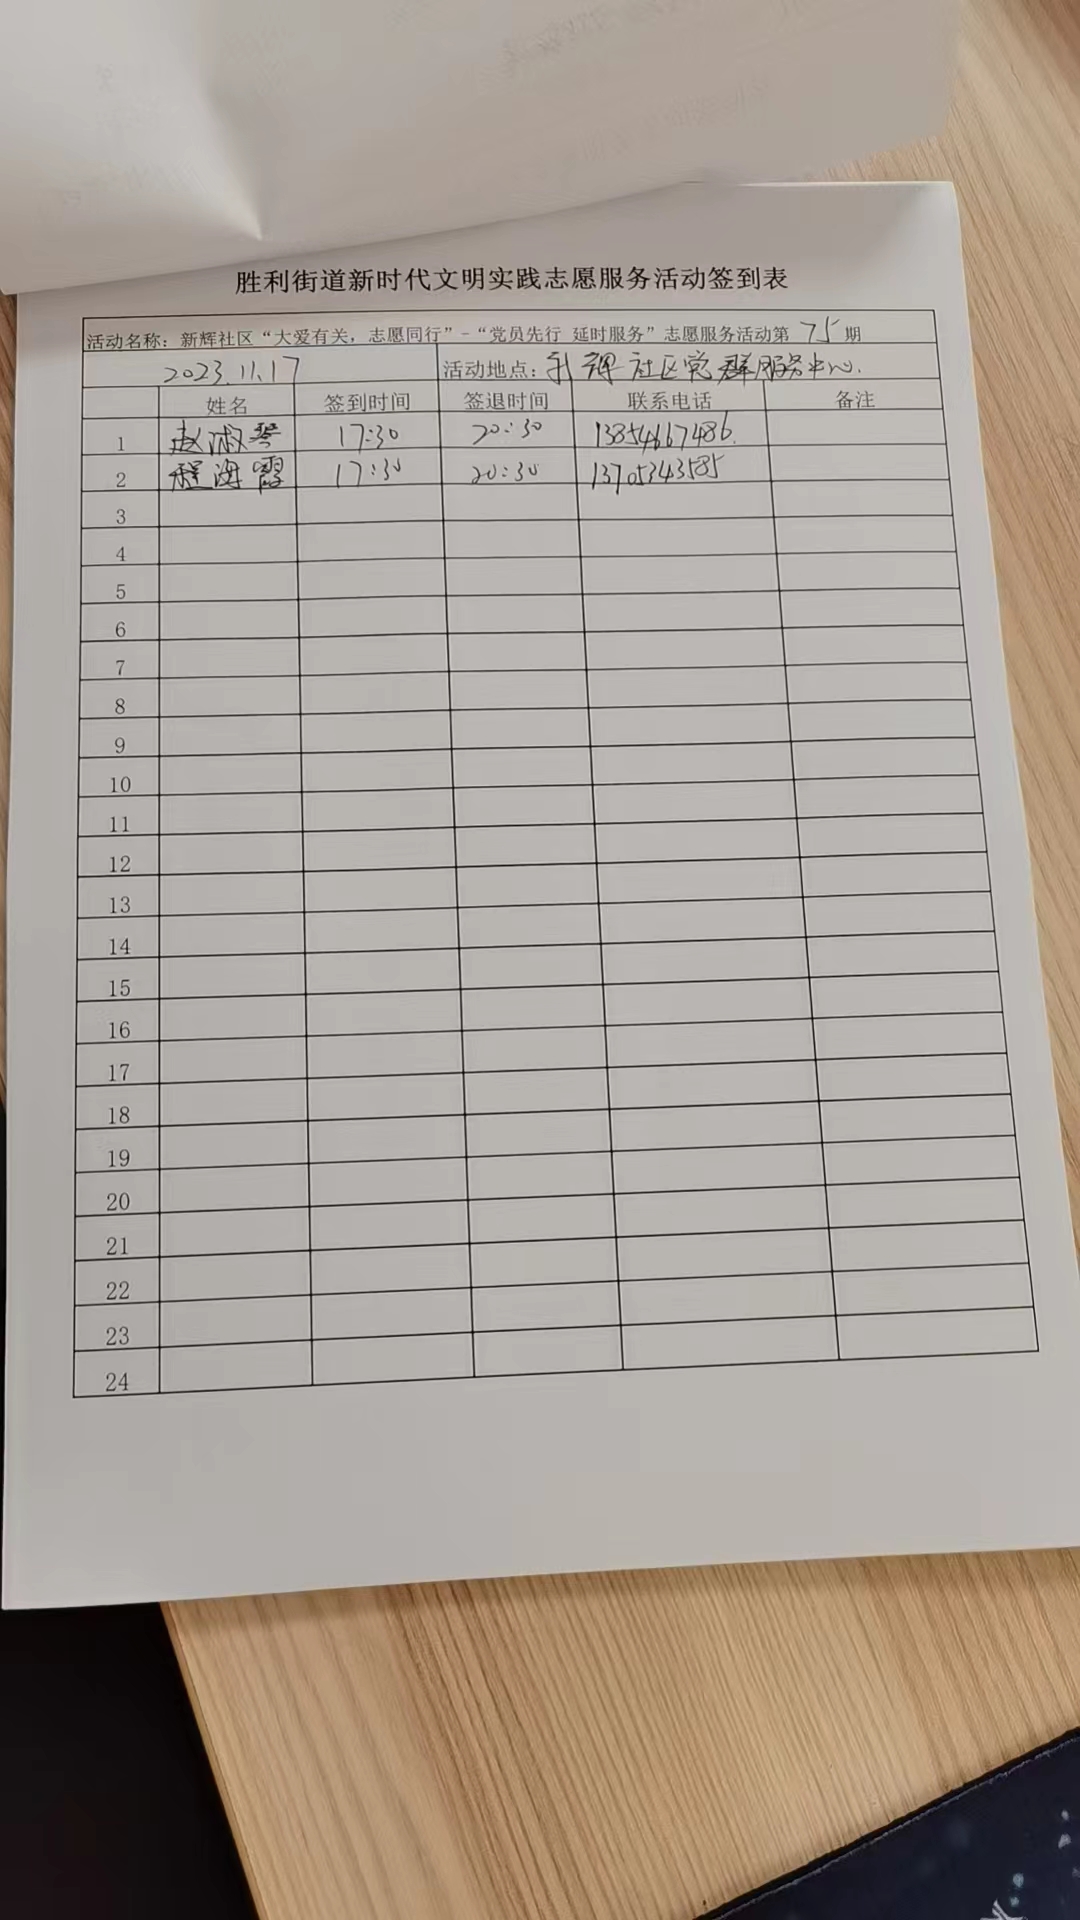 胜利街道新时代文明实践志愿服务活动签到表
活动名称：新辉社区“大爱有关，志愿同行”-“党员先行 延时服务”志愿服务活动第 75 期
2023.11.17 活动地点：新辉社区党群服务中心.
姓名 签到时间 签退时间 联系电话 备注
1 赵淑琴 17:30 20:30 13854667486.
2 程海霞 17:30 20:30 13705343585
3
4
5
6
7
8
9
10
11
12
13
14
15
16
17
18
19
20
21
22
23
24